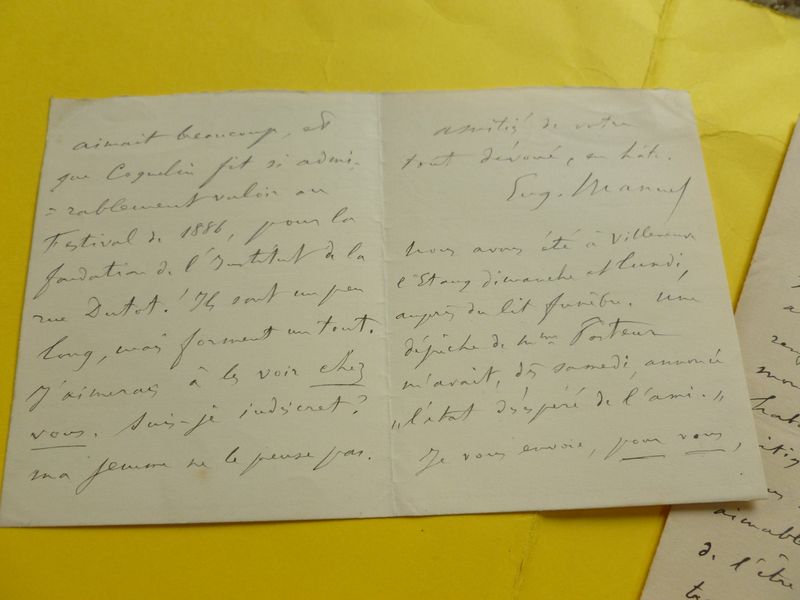 aimait beaucoup, et
que Coquelin fit si admi-
=rablement valoir au
Festival de 1886, pour la
fondation de l'Institut de la
rue Dutot! Ils sont un peu
long, mais forment un tout.
J'aimerais à les voir chez
vous. Suis-je indiscret?
ma femme ne le pense pas.
amitié de votre
tout dévoué, en hâte.
Eug. Manuel
Nous avons été à Villeneuve
l'Etang dimanche et lundi,
auprès du lit funèbre. Une
dépêche de Mme Pasteur
m'avait, dès samedi, annoncé
"l'état désespéré de l'ami."
Je vous envoie, pour vous,
aimable
de l'être